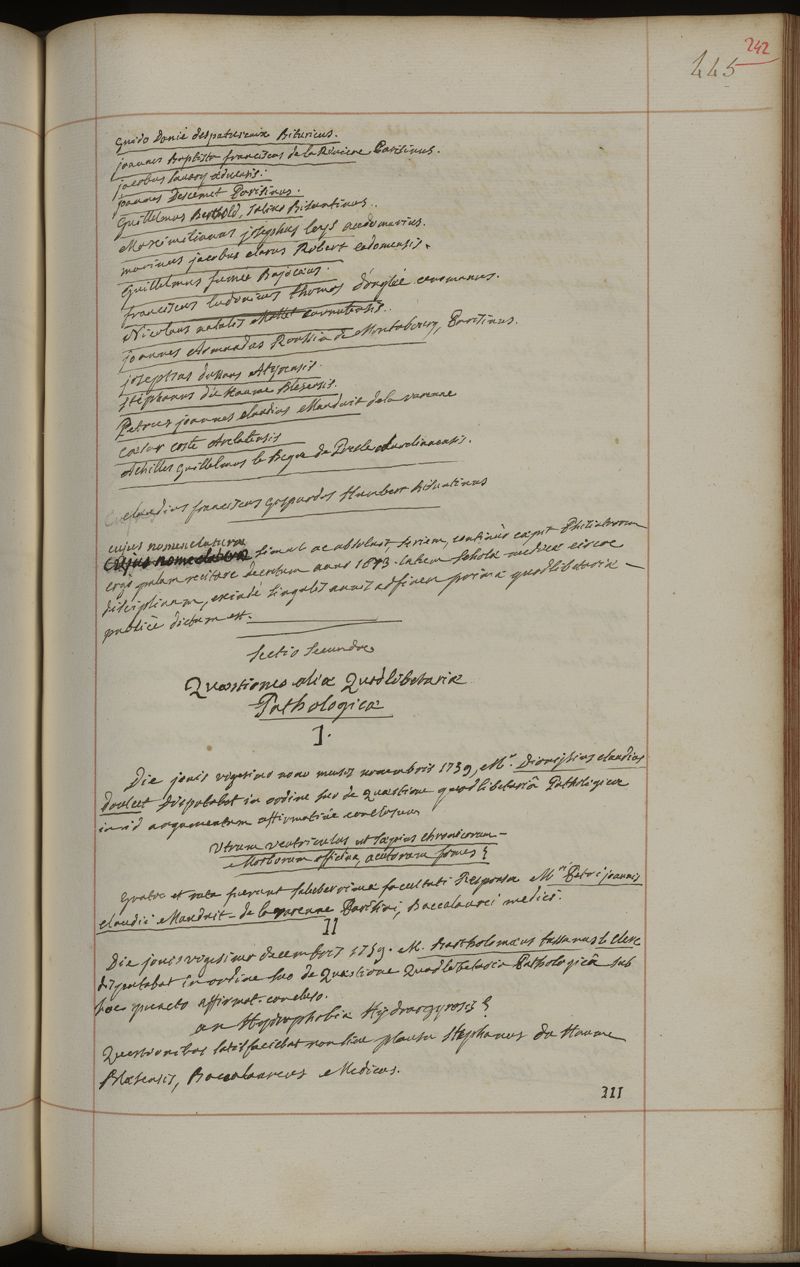 242
445
Guido Danié despatureaux Bituricus.
joannes Baptista franciscus de la Riviere Parisinus.
jacobus Savary
joannes descemet Parisinus.
Guillelmus Berthold, Bisuntinus.
Maximilianus josephus leys audomarius.
marinus jacobus clarus Robert cadomensis.
Guillelmus fumée Bajocæus.
franciscus ludovicus thomas d'onglée cenomanus.
Nicolaus natalis Mallet carnutensis.
joannes Armandus Roussin de Montabourg, Parisinus.
josephus
stephanus du Haume Blesensis.
Petrus joannes claudius Mauduit de la varenne
cæsar coste Arelatensis
Achilles Guillelmus le Begue de Presle Aurelianensis.
claudius franciscus Gaspardus Humbert Bisuntinus
cujus nomenclaturam
simul ac absolvit, seriem, continuò caput Philiatrorum
ergò palam recitare decretum anno 1683. latum scholæ medicæ circa
disciplinam, exinde singulis annis ad finem primæ quodlibetariæ —
publicè dictum est.
Sectio Secunda
Quæstiones aliæ Quodlibetariæ
Pathologicæ
I.
Die jovis vigesimo nono mensis novembris 1759, Mr. Dionisius claudius
doulcet disputabat in ordine suo de quæstione quodlibetariâ Pathologica
in id argumentum affirmativè conclusum
Utrum ventriculus ut sæpius chronicorum –
Morborum officina, acutorum fomes?
Gratæ et ratæ fuerunt saluberrimæ facultati Responsa Mri Petri joannis
claudii Mauduit – de la varenne Parisini, Baccalaurei medici.
II
Die jovis vigesimo decembris 1759. M. Bartholomæus tussanus le Clerc
disputabat in ordine suo de Quæstione Quodlibetariâ Pathologicâ sub
hoc puncto affirmat. concluso.
an Hydrophobiæ Hydrargyrosis?
Quæstionibus satisfaciebat non sine plausu stephanus du Haume
Blæsensis, Baccalaureus Medicus.
III